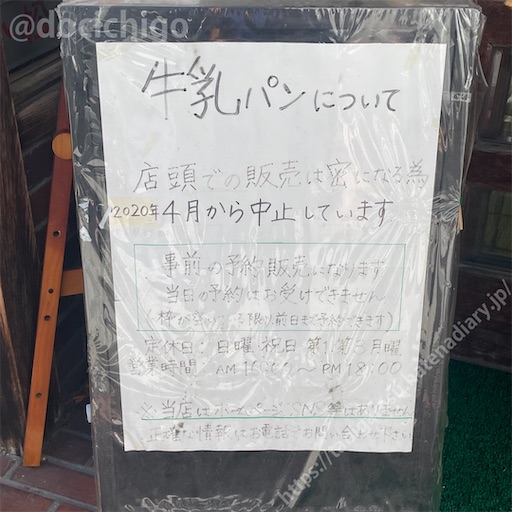 @docichigo
牛乳パンについて
店頭での販売は密になる為
2020年4月から中止しています
事前の予約販売になります
当日の予約はお受けできません
限り前日まで予約できます)
定休日:日曜 祝日 第1第3月曜
営業時間: AM 〜 PM 18:00
※当店はホームページ・SNS等はありません
正確な情報はお電話でお問い合わせ下さい